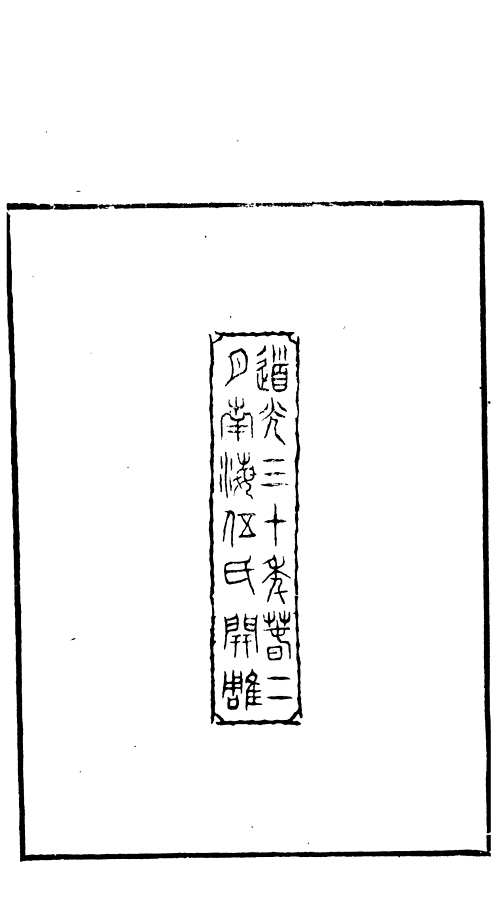 道光三十年春二
月南海伍氏開雕